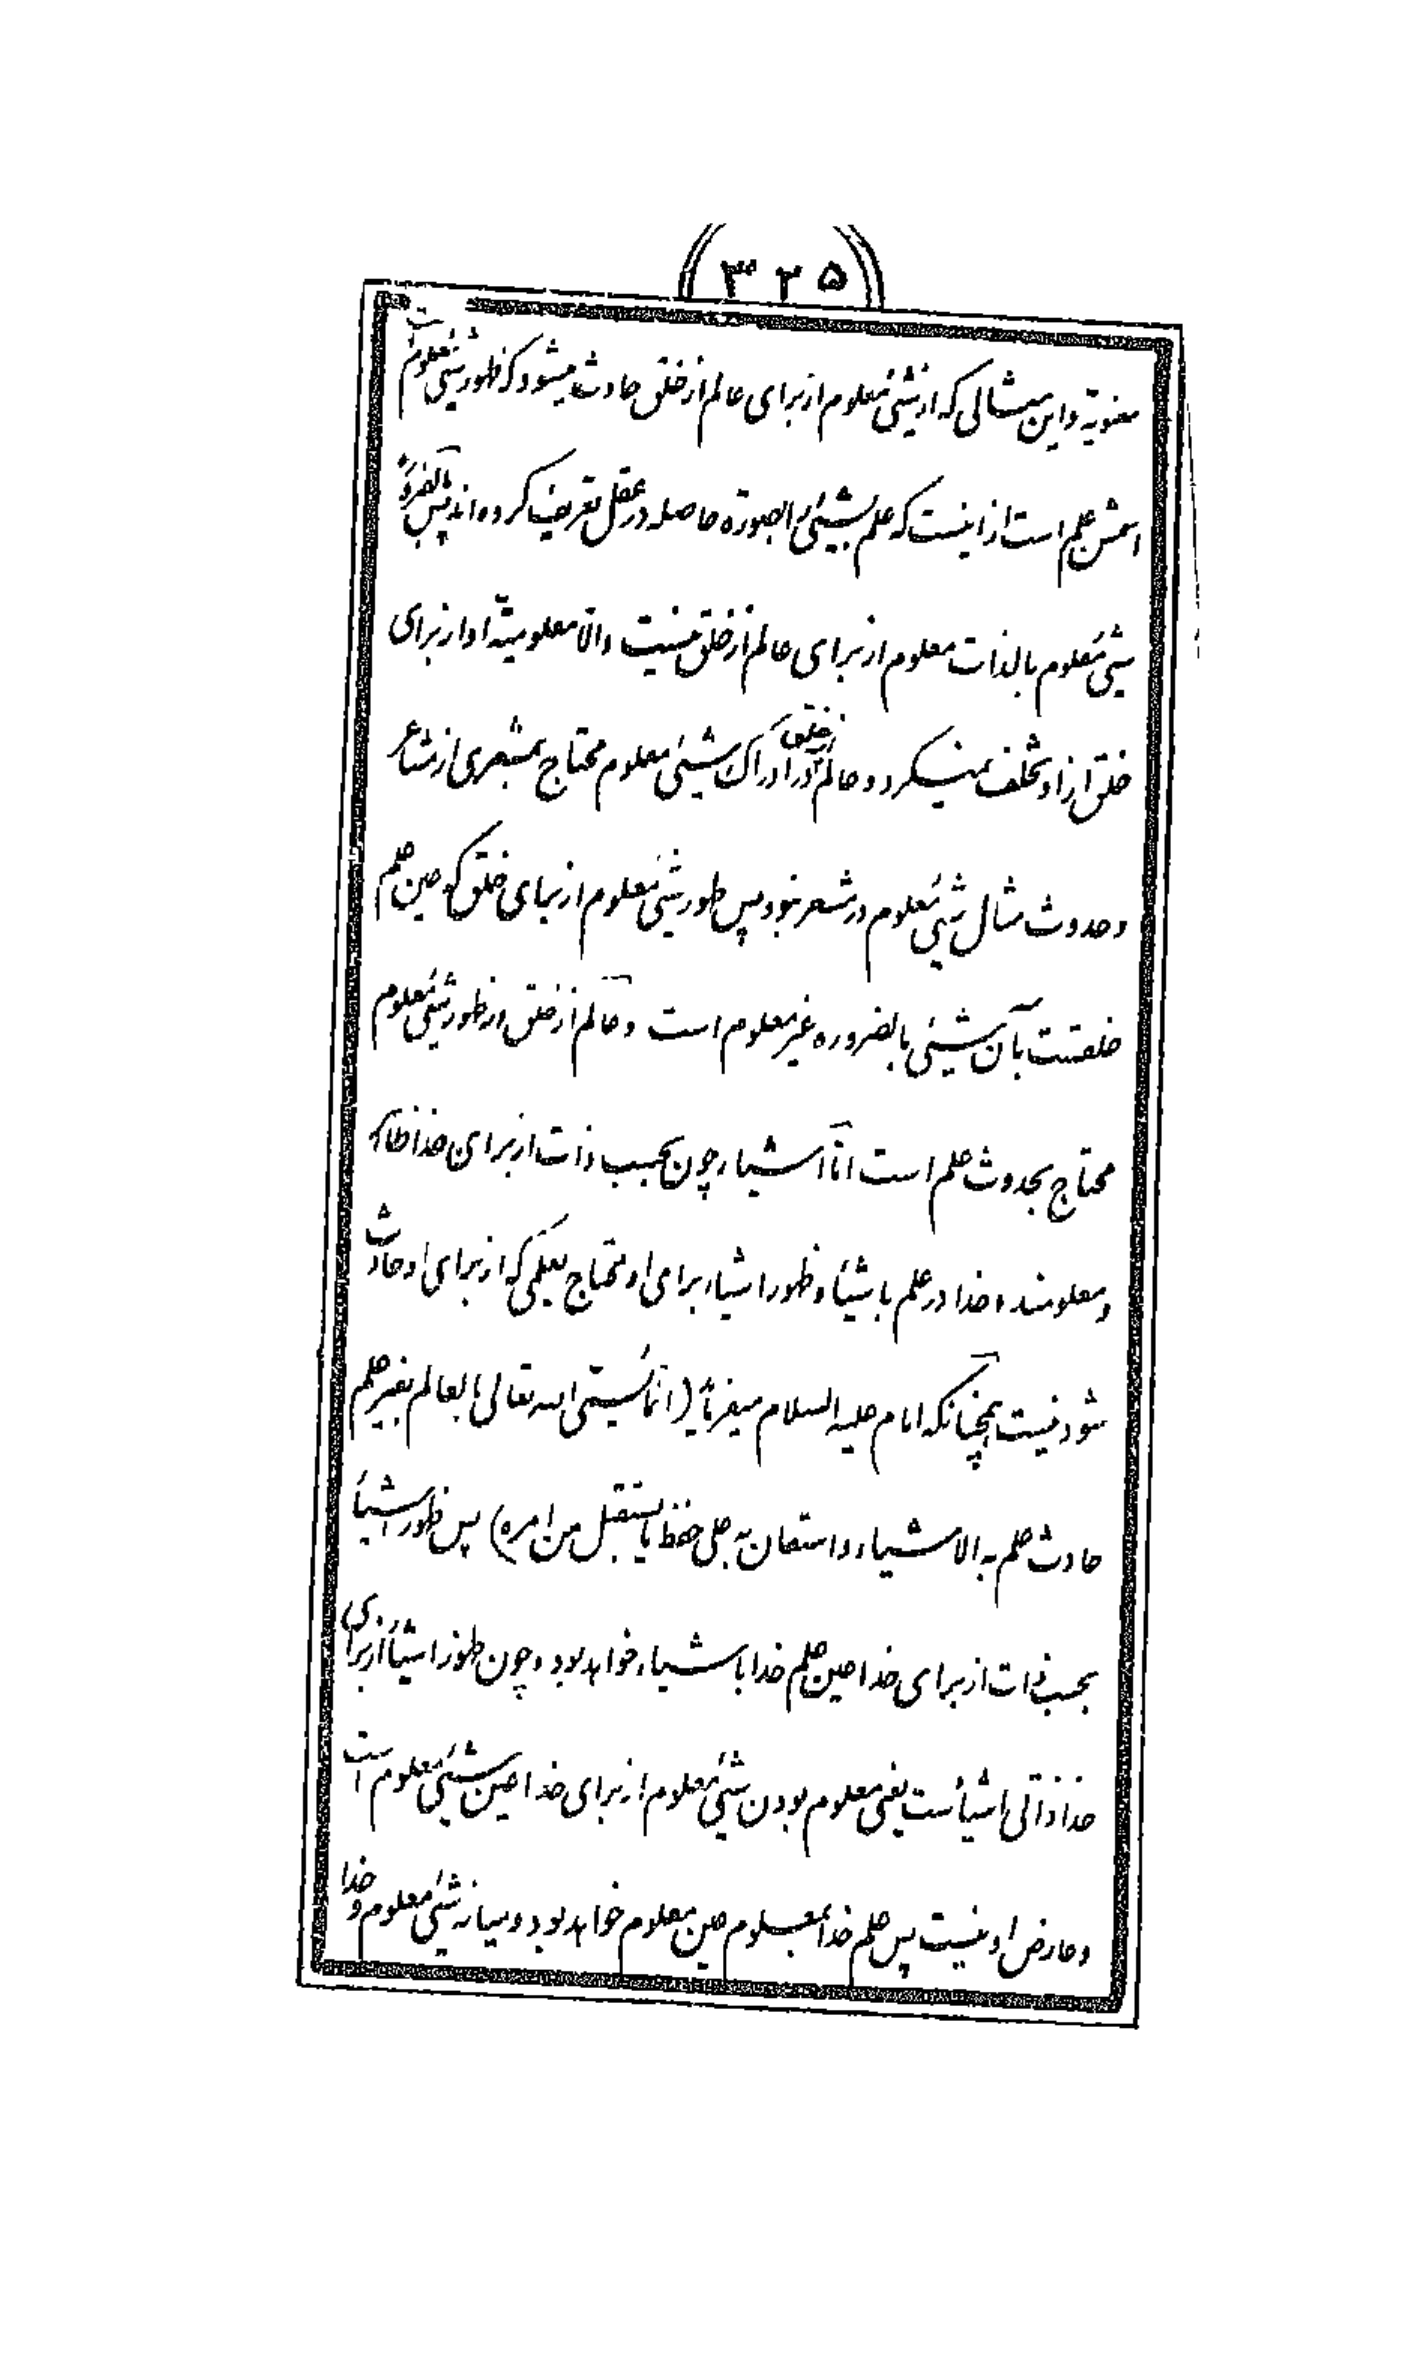 ۳۲۵
معنویة و این مثالی که از شیئی معلوم از برای عالم از خلق حادث میشود که ظهور شیئی معلوم است
اسمش علم است از اینست که علم بشیئی را بصورة حاصله در عقل تعریف کرده اند پس بالضرورة
شیئی معلوم بالذات معلوم از برای عالم از خلق نیست والا معلومیة او از برای
خلق از او تخلف نمیکرد و عالم از خلق در ادراک شیئی معلوم محتاج بمشعری از مشاعر
و حدوث مثال شیئی معلوم در مشعر نبود پس ظهور شیئی معلوم از برای خلق که عین علم
خلقست بآن شیئی بالضروره غیر معلوم است و عالم از خلق در ظهور شیئی معلوم
محتاج بحدوث علم است اما اشیاء چون بحسب ذات از برای خدا ظاهر
و معلومند و خدا در علم باشیاء و ظهور اشیاء برای او محتاج بعلمی که از برای او حادث
شود نیست همچنانکه امام علیه السلام میفرماید (انما یسمی الله تعالی بالعالم بغیر علم
حادث علم به الاشیاء و استعان به علی حفظ ما یستقبل من امره) پس ظهور اشیاء
بحسب ذات از برای خدا عین علم خدا باشیاء خواهد بود و چون ظهور اشیاء از برای
خدا ذاتی اشیاء است یعنی معلوم بودن شیئی معلوم از برای خدا عین شیئی معلوم است
و عارض او نیست پس علم خدا بمعلوم عین معلوم خواهد بود و میانه شیئی معلوم و خدا